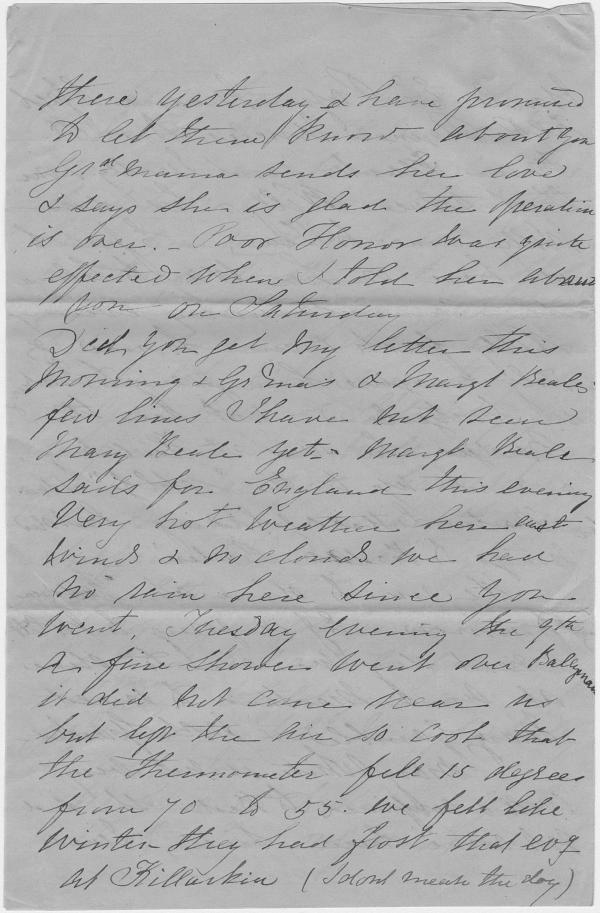 there yesterday & have promised
to let them know about you
Grd Mama sends her love
& says she is glad the operation
is over. - Poor Honor was quite
effected when I told her about
you on Saturday
Did you get my letter this
Morning & Gr'mas & Margt Beales
few lines I have not seen
Mary Beale yet - Margt Beale
sails for England this evening
Very hot weather here east
winds & no clouds we had
no rain here since you
went, Tuesday evening the 9th
a fine shower went over
it did not come near us
but left the air so cool that
the thermometer fell 15 degrees
from 70 to 55. we felt like
winter they had frost that evg
at (I dont mean the day)